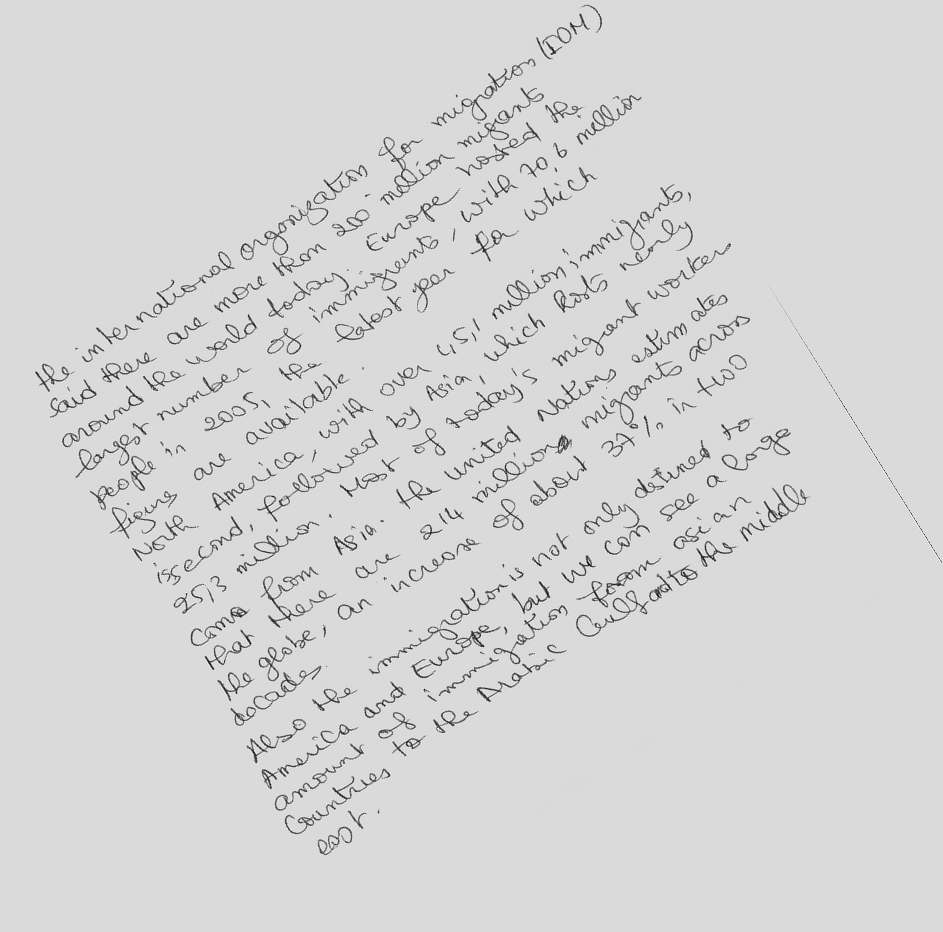 the international organization for migration (IOM)
said there are more than 200 million migrants
around the world today. Europe hosted the
largest number of immigrants, with 70,6 million
people in 2005, the latest year for which
figures are available.
North America, with over 45,1 million immigrants,
is second, followed by Asia, which hosts nearly
25,3 million. Most of today's migrant workers
come from Asia. the United Nations estimates
that there are 214 million migrants across
the globe, an increase of about 37% in two
decades.
Also the immigration is not only destined to
America and Europe, but we can see a large
amount of immigration from asian
Countries to the Arabic Gulf to the middle
east.